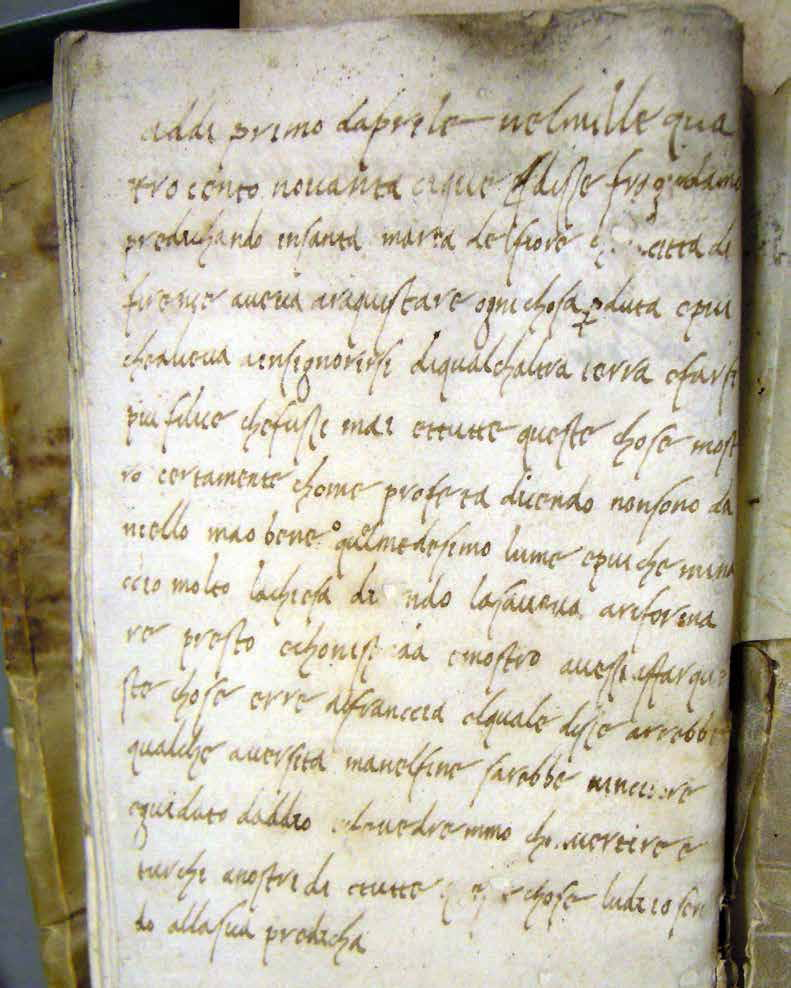 addi primo daprile nelmille qua
tro cento novanta cique disse fra
predichando insanta maria del fiore citta di
firenze aveva araquistare ogni chosa pduta epiu
cheaveva ainsignorirsi diqualchaltra terra efarsi
piu felice chefussi mai ettutte queste chose most
ro certamente chome profeta dicendo nonsono da
niello mao bene quelmedesimo lume epiu che mina
ccio molto lachiesa lasaveva ariforma
re presto emostro avessi affar que
ste chose erre difranccia elquale disse arrebbe
qualche aversita manelfine sarebbe
eguidato daddio vedremmo e
turchi anostri di ettutte chose ludi io sen
do allasua predicha